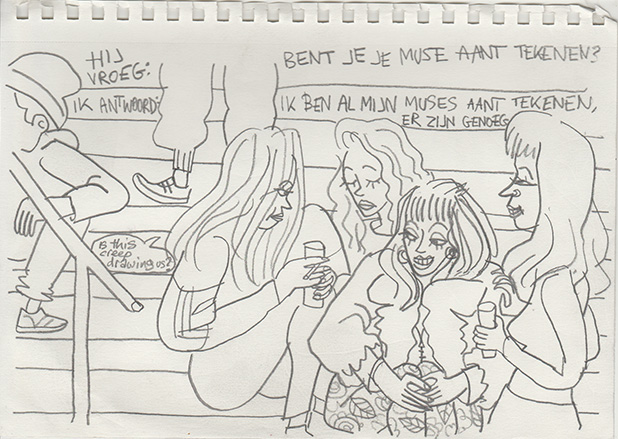 HIJ
VROEG:
BENT JE JE MUSE AANT TEKENEN?
IK ANTWOORD:
IK BEN AL MIJN MUSES AANT TEKENEN,
ER ZIJN GENOEG
is this
creep
drawing us?